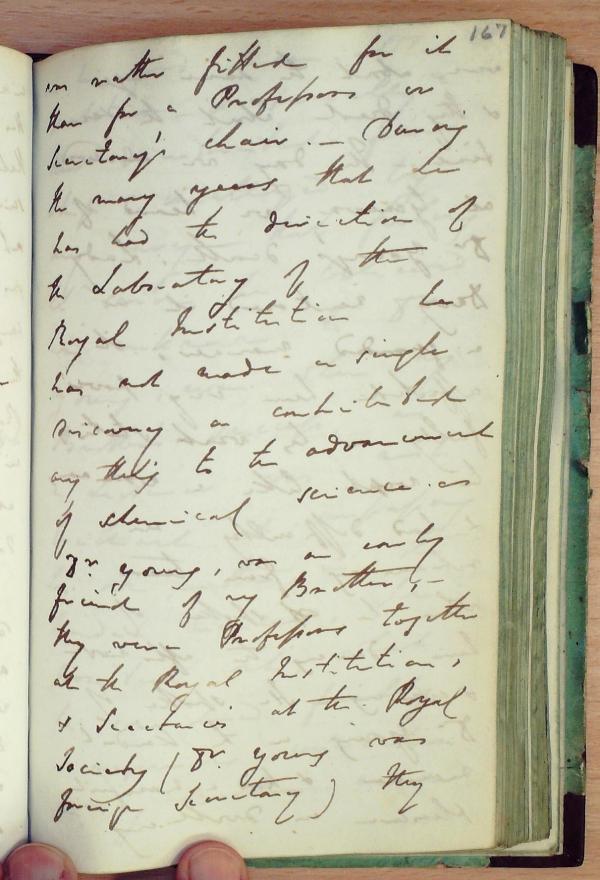 167
was rather fitted for it
than for a Professors or
Secretary's chair. – During
the many years that he
has had the direction of
the Laboratory of the
Royal Institution he
has not made a single
discovery or contributed
any thing to the advancement
of chemical science.
Dr. Young, was an early
friend of my Brother; –
they were Professors together
at the Royal Institution,
& Secretaries at the Royal
Society (Dr. Young was
foreign Secretary) they